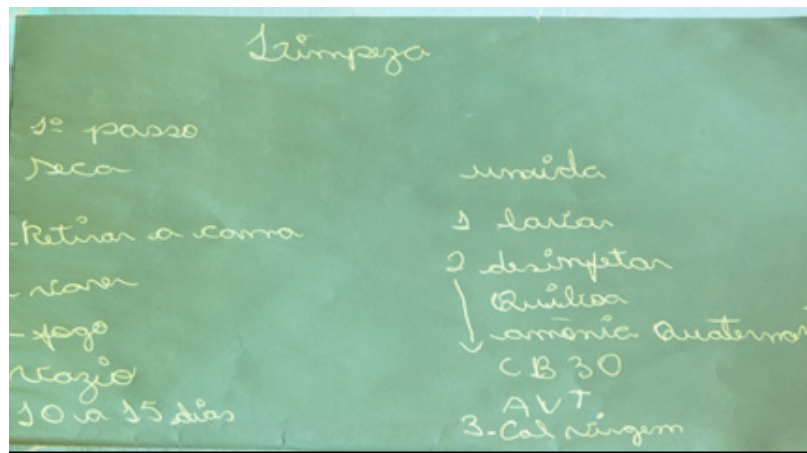 Limpeza
1º passo
seca
- Retirar a cama
- varer
- fogo
vazio
10 a 15 dias
umida
1 lavar
2 desinfetar
Quiboa
amônia Quaterna
CB 30
AVT
3-Cal virgem